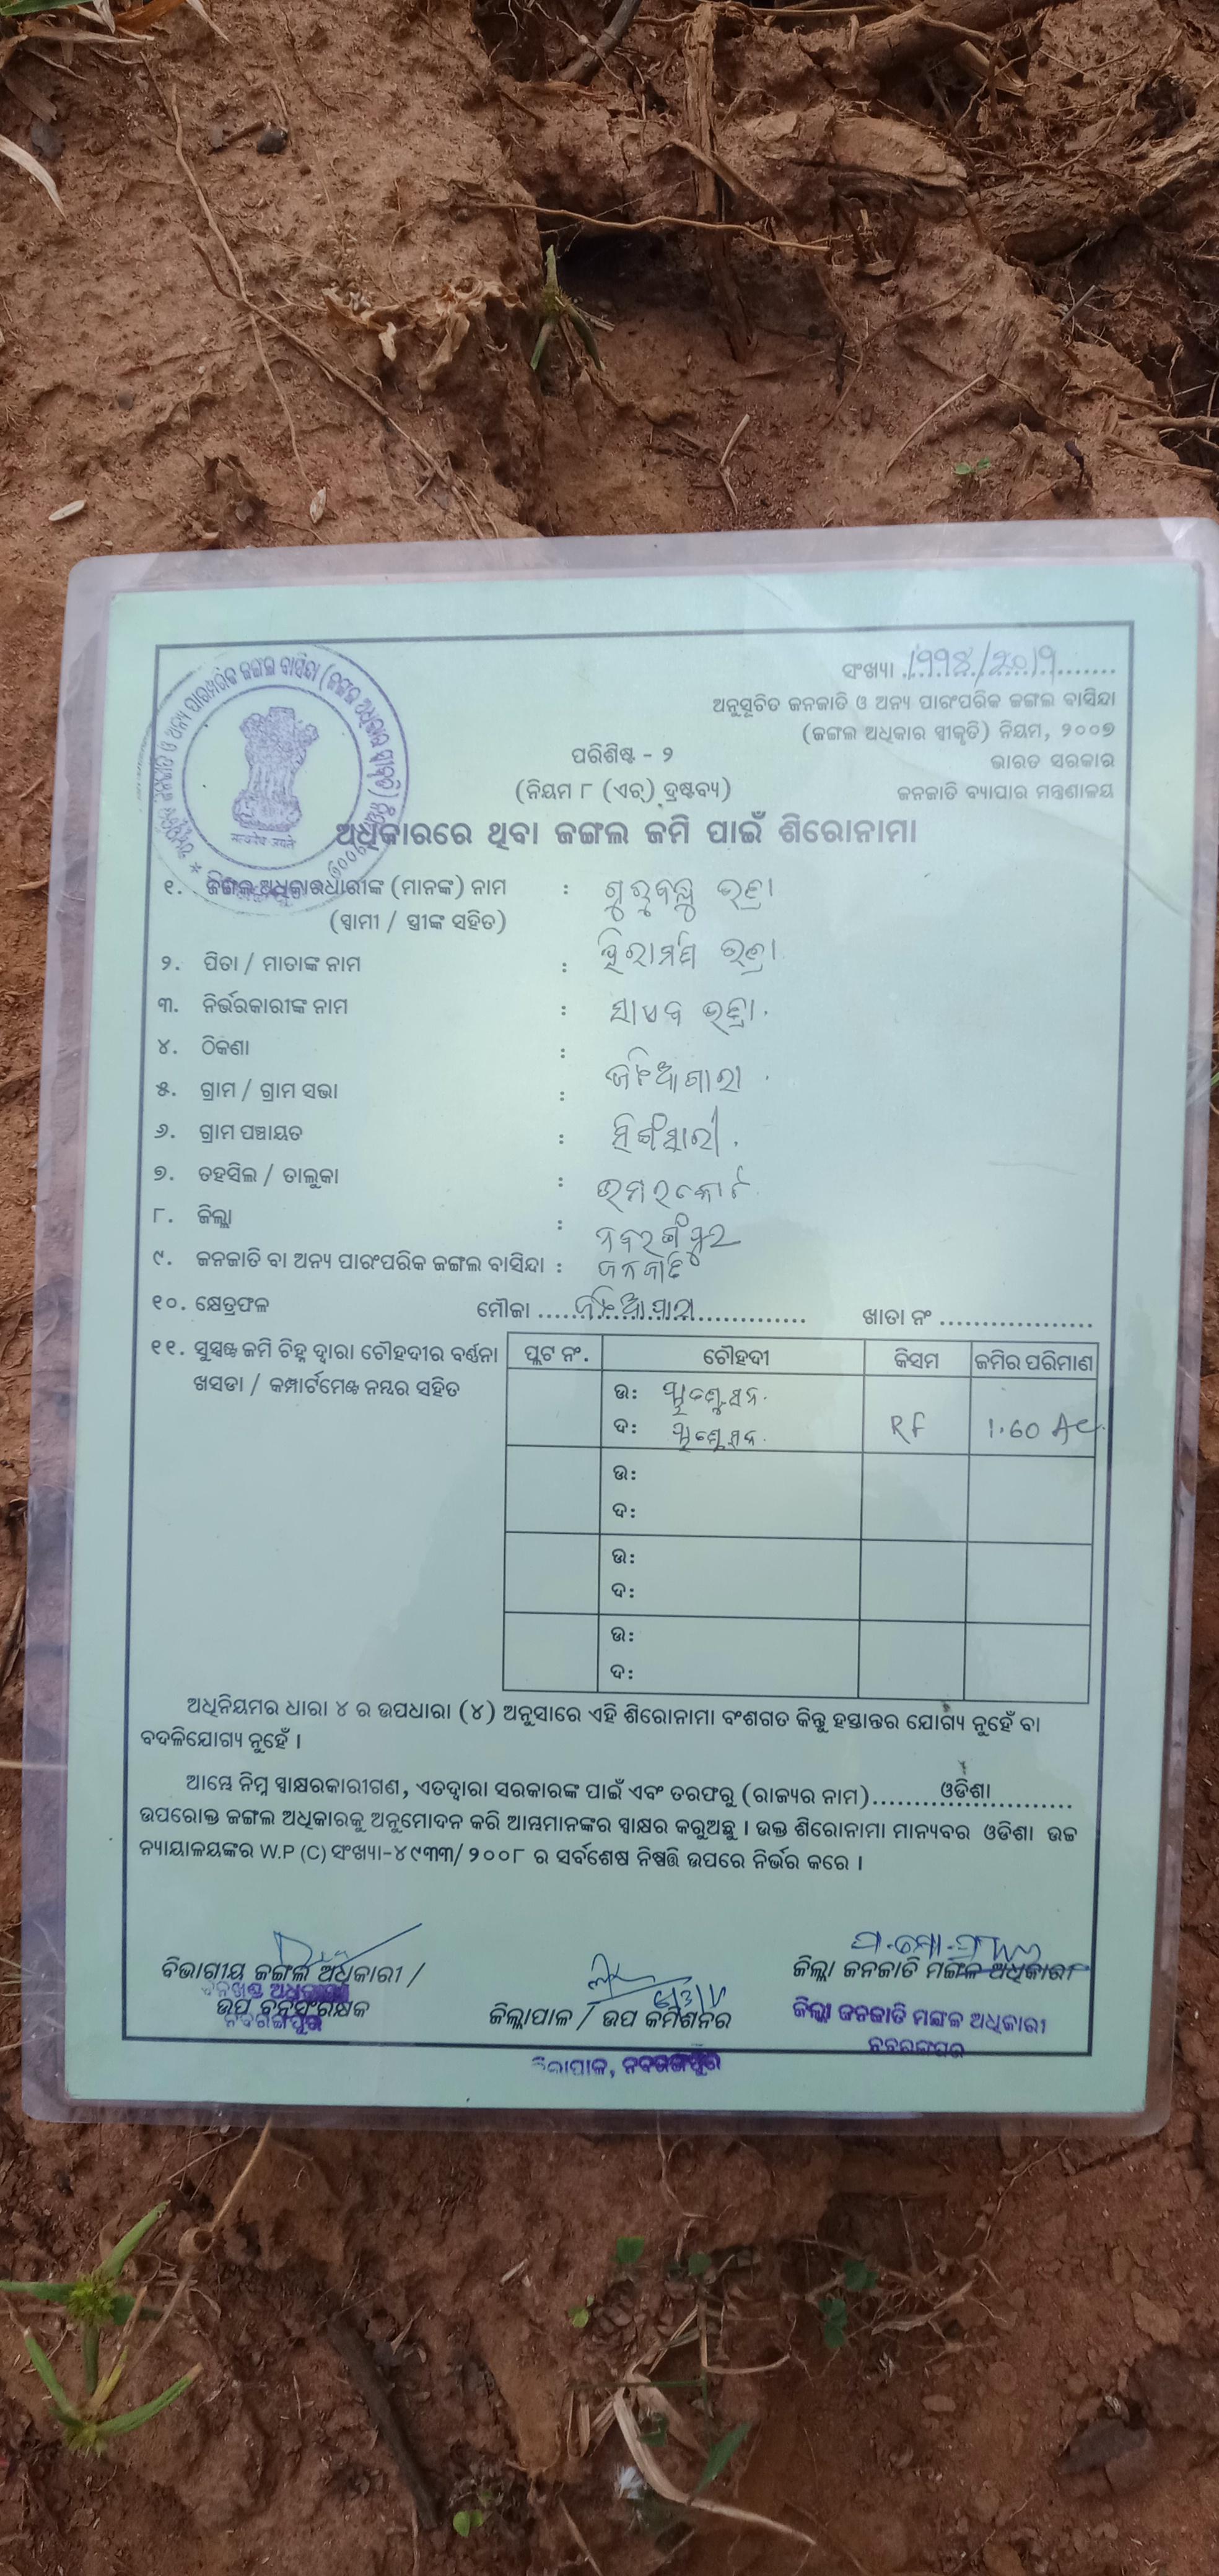 ସଂଖ୍ୟା
ଅନୁସୂଚିତ ଜନଜାତି ଓ ଅନ୍ୟ ପାରଂପରିକ ଜଙ୍ଗଲ ବାସିନ୍ଦା
(ଜଙ୍ଗଲ ଅଧିକାର ସ୍ୱୀକୃତି) ନିୟମ, ୨୦୦୭
ଭାରତ ସରକାର
ଜନଜାତି ବ୍ୟାପାର ମନ୍ତ୍ରଣାଳୟ
ପରିଶିଷ୍ଟ - ୨
(ନିୟମ ୮ (ଏଚ୍) ଦ୍ରଷ୍ଟବ୍ୟ)
ଅଧିକାରରେ ଥିବା ଜଙ୍ଗଲ ଜମି ପାଇଁ ଶିରୋନାମା
୧. ଜଙ୍ଗଲ ଅଧିକାରଧାରୀଙ୍କ (ମାନଙ୍କ) ନାମ :
(ସ୍ୱାମୀ / ସ୍ତ୍ରୀଙ୍କ ସହିତ)
୨. ପିତା / ମାତାଙ୍କ ନାମ :
୩. ନିର୍ଭରକାରୀଙ୍କ ନାମ :
୪. ଠିକଣା :
୫. ଗ୍ରାମ / ଗ୍ରାମ ସଭା :
୬. ଗ୍ରାମ ପଞ୍ଚାୟତ :
୭. ତହସିଲ / ତାଲୁକା : ଉମରକୋଟ
୮. ଜିଲ୍ଲା : ନବରଙ୍ଗପୁର
୯. ଜନଜାତି ବା ଅନ୍ୟ ପାରଂପରିକ ଜଙ୍ଗଲ ବାସିନ୍ଦା : ଜନଜାତି
୧୦. କ୍ଷେତ୍ରଫଳ ମୌଜା ଖାତା ନଂ
୧୧. ସୁସ୍ପଷ୍ଟ ଜମି ଚିହ୍ନ ଦ୍ୱାରା ଚୌହଦୀର ବର୍ଣ୍ଣନା
ଖସଡା / କମ୍ପାର୍ଟମେଣ୍ଟ ନମ୍ବର ସହିତ
ପ୍ଲଟ ନଂ. ଚୌହଦୀ କିସମ ଜମିର ପରିମାଣ
ଉ:
ଦ: RF 1.60 AC
ଉ:
ଦ:
ଉ:
ଦ:
ଉ:
ଦ:
ଅଧିନିୟମର ଧାରା ୪ ର ଉପଧାରା (୪) ଅନୁସାରେ ଏହି ଶିରୋନାମା ବଂଶଗତ କିନ୍ତୁ ହସ୍ତାନ୍ତର ଯୋଗ୍ୟ ନୁହେଁ ବା
ବଦଳିଯୋଗ୍ୟ ନୁହେଁ ।
ଆମ୍ଭେ ନିମ୍ନ ସ୍ୱାକ୍ଷରକାରୀଗଣ, ଏତଦ୍ୱାରା ସରକାରଙ୍କ ପାଇଁ ଏବଂ ତରଫରୁ (ରାଜ୍ୟର ନାମ) ଓଡିଶା
ଉପରୋକ୍ତ ଜଙ୍ଗଲ ଅଧିକାରକୁ ଅନୁମୋଦନ କରି ଆମ୍ଭମାନଙ୍କର ସ୍ୱାକ୍ଷର କରୁଅଛୁ । ଉକ୍ତ ଶିରୋନାମା ମାନ୍ୟବର ଓଡିଶା ଉଚ୍ଚ
ନ୍ୟାୟାଳୟଙ୍କର W.P (C) ସଂଖ୍ୟା-୪୯୩୩/୨୦୦୮ ର ସର୍ବଶେଷ ନିଷ୍ପତ୍ତି ଉପରେ ନିର୍ଭର କରେ ।
ବିଭାଗୀୟ ଜଙ୍ଗଲ ଅଧିକାରୀ /
ଉପ ବନସଂରକ୍ଷକ
ନବରଙ୍ଗପୁର
ଜିଲ୍ଲାପାଳ / ଉପ କମିଶନର
ଜିଲ୍ଲାପାଳ, ନବରଙ୍ଗପୁର
ଜିଲ୍ଲା ଜନଜାତି ମଙ୍ଗଳ ଅଧିକାରୀ
ଜିଲ୍ଲା ଜନଜାତି ମଙ୍ଗଳ ଅଧିକାରୀ
ନବରଙ୍ଗପୁର